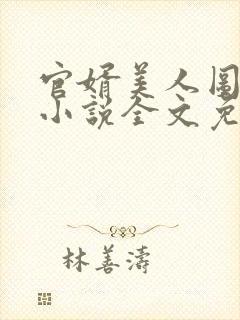 官婿美人图
小说全文免
林善涛